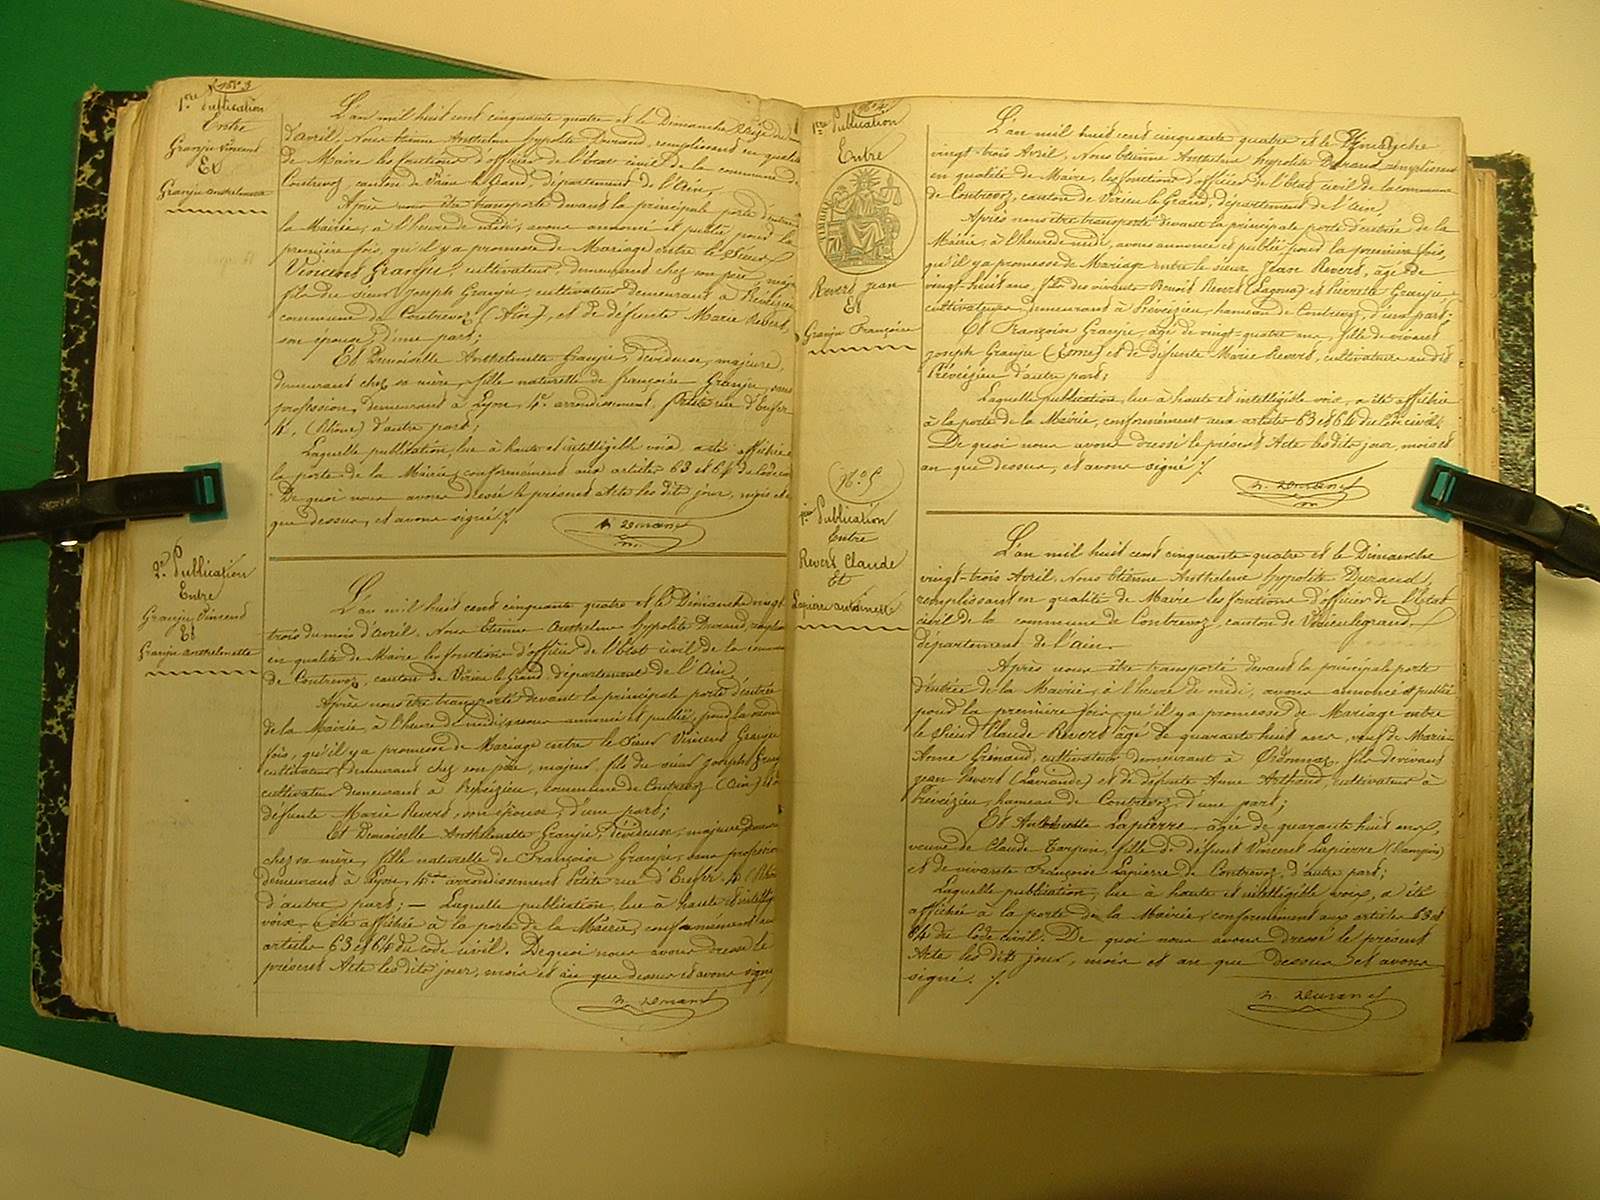 N° 3
1ère Publication
Entre
Granju Vincent
Et
Granju Anthelmette
L'an mil huit cent cinquante quatre et le Dimanche seize du
d'avril, Nous Etienne Anthelme hypolite Durand, remplissant en qualité
de Maire les fonctions d'officier de l'état civil de la commune de
Contrevoz, canton de Virieu le Grand, département de l'Ain,
Après nous être transporté devant la principale porte d'entrée
la Mairie, à l'heure de midi, avons annoncé et publié pour la
première fois, qu'il y a promesse de Mariage entre le Sieur
Vincent Granju, cultivateur, demeurant chez son père, majeur
fils du sieur Joseph Granju, cultivateur demeurant à Préveizieu
commune de Contrevoz (Ain), et de défunte Marie Revert,
son épouse, d'une part;
Et Demoiselle Anthelmette Granju, dévideuse, majeure,
demeurant chez sa mère, fille naturelle de françoise Granju, sans
profession, demeurant à Lyon, 4e arrondissement, Petite rue d'
4, (Rhône) d'autre part;
Laquelle publication, lue à haute et intelligible voix a été affichée
la porte de la Mairie, conformément aux articles 63 et 64 du Code civil
De quoi nous avons dressé le présent Acte les dits jour, mois et
que dessus, et avons signé ./.
h. Durand
2e Publication
Entre
Granju Vincent
Et
Granju Anthelmette
L'an mil huit cent cinquante quatre et le Dimanche vingt
trois du mois d'avril, Nous Etienne Anthelme Hyppolite Durand,
en qualité de Maire les fonctions d'officier de l'Etat civil de la commune
de Contrevoz, canton de Virieu le Grand, département de l'Ain,
Après nous être transporté devant la principale porte d'entrée
de la Mairie, à l'heure de midi, avons annoncé et publié, pour la seconde
fois, qu'il y a promesse de Mariage entre le Sieur Vincent Granju
cultivateur, demeurant chez son père, majeur, fils du sieur Joseph
cultivateur demeurant à , commune de Contrevoz (Ain) et de
défunte Marie Revert, son épouse, d'une part;
Et Demoiselle Anthelmette Granju, dévideuse, majeure demeurant
chez sa mère, fille naturelle de Françoise Granju, sans profession
demeurant à Lyon, 4me arrondissement Petite rue d' 4 (Rhône)
d'autre part; — Laquelle publication, lue à haute et intelligible
voix, a été affichée à la porte de la Mairie, conformément aux
articles 63 et 64 du Code civil. De quoi nous avons dressé le
présent Acte les dits jour, mois et an que dessus et avons signé
h. Durand
N° 4.
1ère Publication
Entre
TIMBRE
Revert Jean
Et
Granju Françoise
L'an mil huit cent cinquante quatre et le Dimanche
vingt-trois Avril, Nous Etienne Anthelme hypolite Durand, remplissant
en qualité de Maire, les fonctions d'officier de l'Etat civil de la commune
de Contrevoz, canton de Virieu le Grand, département de l'Ain.
Après nous être transporté devant la principale porte d'entrée de la
Mairie, à l'heure de midi, avons annoncé et publié pour la première fois,
qu'il y a promesse de Mariage entre le sieur Jean Revert, âgé de
vingt-huit ans, fils des vivants Benoit Revert et Pierrette Granju
cultivateurs, demeurant à Préveizieu, hameau de Contrevoz, d'une part.
Et Françoise Granju, âgée de vingt-quatre ans, fille de vivant
Joseph Granju et de défunte Marie Revert, cultivateur au dit
Préveizieu d'autre part;
Laquelle publication, lue à haute et intelligible voix, a été affichée
à la porte de la Mairie, conformément aux articles 63 et 64 du Code civil.
De quoi nous avons dressé le présent Acte les dits jour, mois et
an que dessus, et avons signé ./.
h. Durand
N° 5
1ère Publication
Entre
Revert Claude
Et
Lapierre antoinette
L'an mil huit cent cinquante-quatre et le Dimanche
vingt-trois Avril, Nous Etienne Anthelme hypolite Durand,
remplissant en qualité de Maire les fonctions d'officier de l'Etat
civil de la commune de Contrevoz, canton de Virieu legrand,
département de l'Ain.
Après nous être transporté devant la principale porte
d'entrée de la Mairie, à l'heure de midi, avons annoncé et publié
pour la première fois qu'il y a promesse de Mariage entre
le Sieur Claude Revert âgé de quarante huit ans, veuf de Marie
Anne Grénaud, cultivateur demeurant à Ordonnaz, fils de vivant
Jean Revert et de défunte Anne Arthaud, cultivateur à
Préveizieu, hameau de Contrevoz, d'une part;
Et Antoinette Lapierre, âgée de quarante huit ans,
veuve de Claude , fille de défunt Vincent Lapierre
et de vivante Françoise Lapierre de Contrevoz, d'autre part;
Laquelle publication, lue à haute et intelligible voix, a été
affichée à la porte de la Mairie, conformément aux articles 63 et
64 du Code civil. De quoi nous avons dressé le présent
Acte les dits jour, mois et an que dessus et avons
signé. ./.
h. Durand